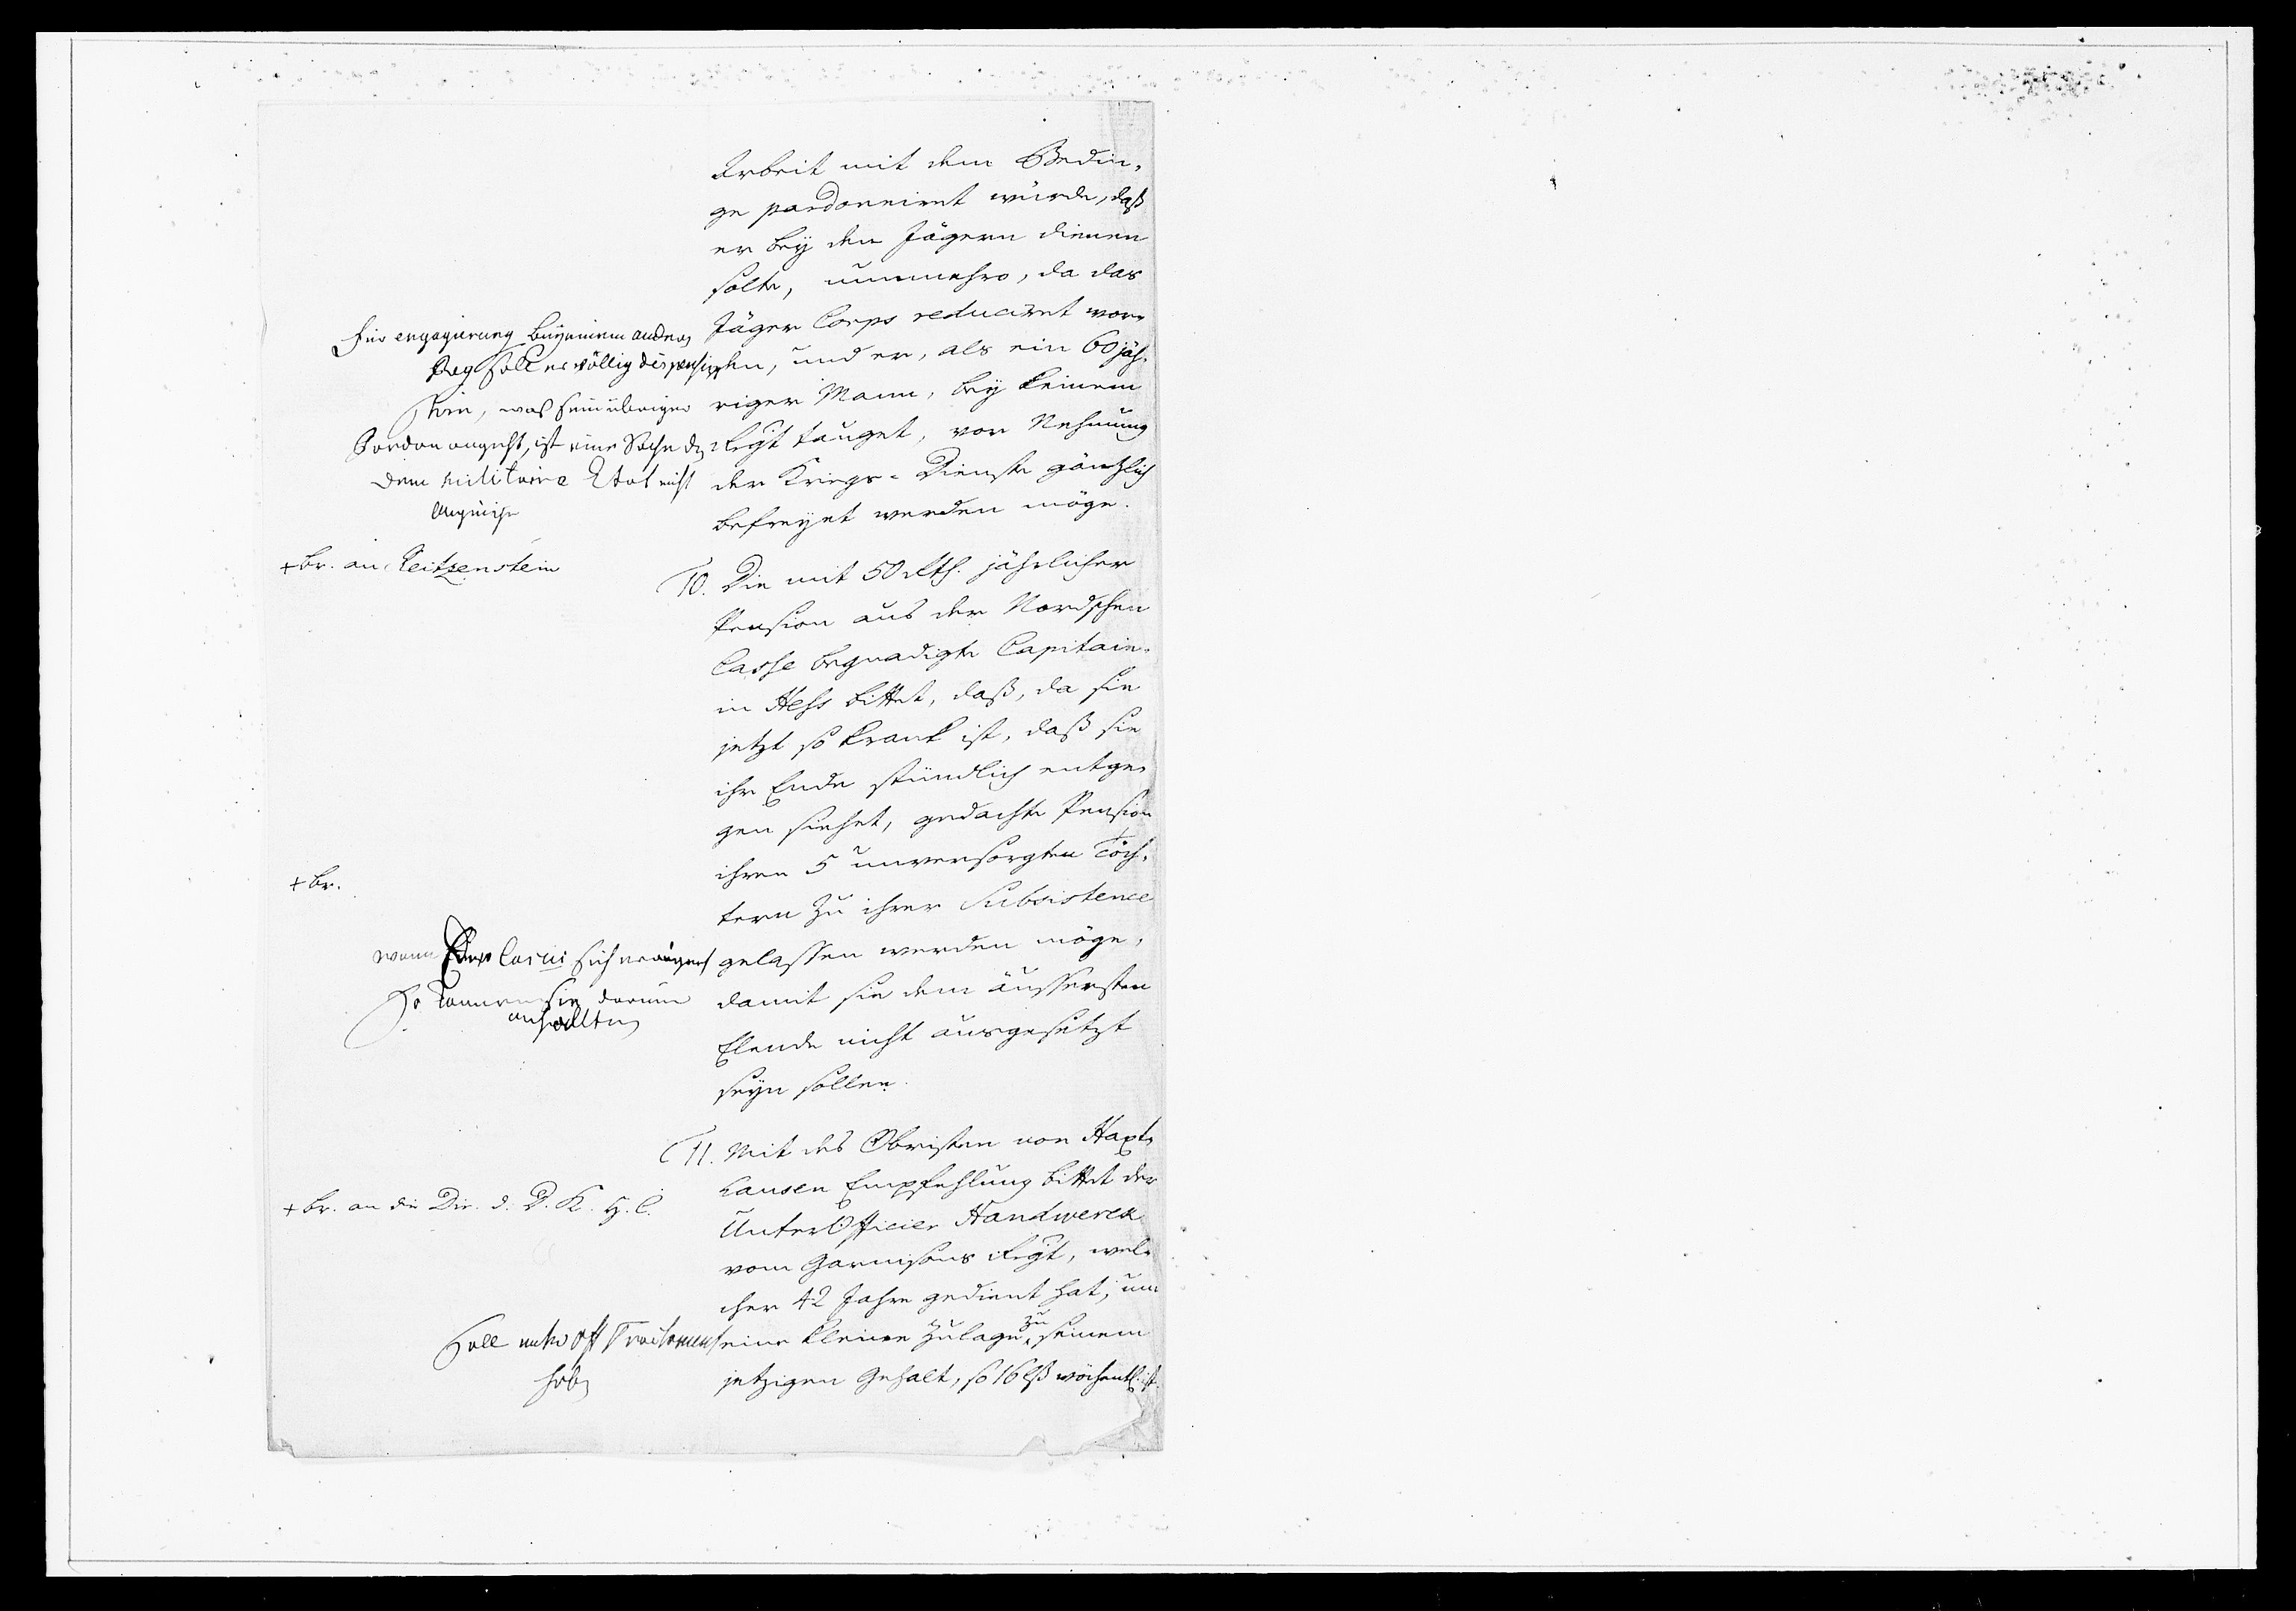 Arbeit mit dem Bedin-
ge pardonnirt würde, daß
er bey den Jägern dienen
solte, nunmehro, da das
Jäger Corps reduciret wor-
den, und er, als ein 60 jäh-
riger Mann, bey keinem
Regt tauget, von Nehmung
der Kriegs-Dienste gäntzlich
befreyet werden möge.
für engagirung bey einem andern
Reg soll er völlig dispensirt
sein, was sein übriger
Pardon angeht, ist eine Sache die
dem militaire Etat nicht
angeht
+ Br. an Reitzenstein
10. Die mit 50 Rth. jährlicher
Pension aus der Nordschen
Casse begnadigte Capitain-
in Hess bittet, daß, da sie
jetzt so krank ist, daß sie
ihr Ende stündlich entge-
gen siehet, gedachte Pension
ihren 5 unversorgten Töch-
tern zu ihrer Subsistence
gelassen werden möge,
damit sie dem äussersten
Elende nicht ausgesetzt
seyn sollen.
+ Br.
wenn der Casus sich ereignet
so können sie darum
anhalten
11. Mit des Obristen von Haxt-
hausen Empfehlung bittet der
UnterOfficier Handwerck
vom Garnisons Regt, wel-
cher 42 Jahre gedient hat, um
eine kleine Zulage zu seinem
jetzigen Gehalt, so 16 lß wöchentl. ist.
+ Br. an die Dir. d. D. K. H. C.
soll unter Off Tractement
haben